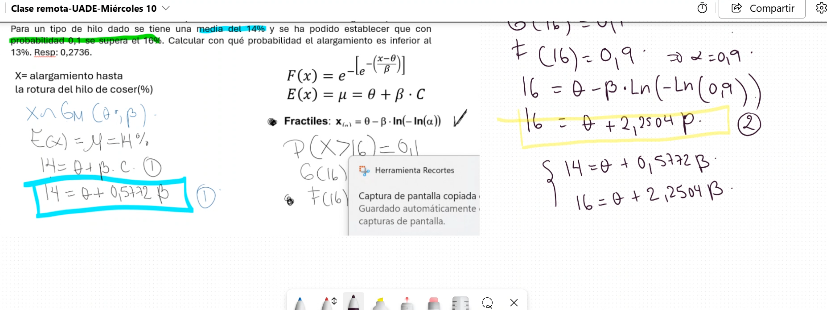 Clase remota-UADE-Miércoles 10
Compartir
Para un tipo de hilo dado se tiene una media del 14% y se ha podido establecer que con
probabilidad 0,1 se supera el 16%. Calcular con qué probabilidad el alargamiento es inferior al
13%. Resp: 0,2736.
X= alargamiento hasta
la rotura del hilo de coser(%)
X ∩ GM (θ; β).
E(x) = M = 14%
14 = θ + β. C. ①
14 = θ + 0,5772 β ①
F(x) = e^-[e^-((x-θ)/β)]
E(x) = μ = θ + β · C
Fractiles: x₍α₎ = θ – β · ln(– ln(α))
P(X>16)=0,1
G(16)
F(16)
Herramienta Recortes
Captura de pantalla copiada
Guardado automáticamente
capturas de pantalla.
G(16) = 0,1
F(16) = 0,9. ⇒ α = 0,9.
16 = θ - β. Ln(-Ln(0,9))
16 = θ + 2,2504 β. ②
14 = θ + 0,5772 β.
16 = θ + 2,2504 β.